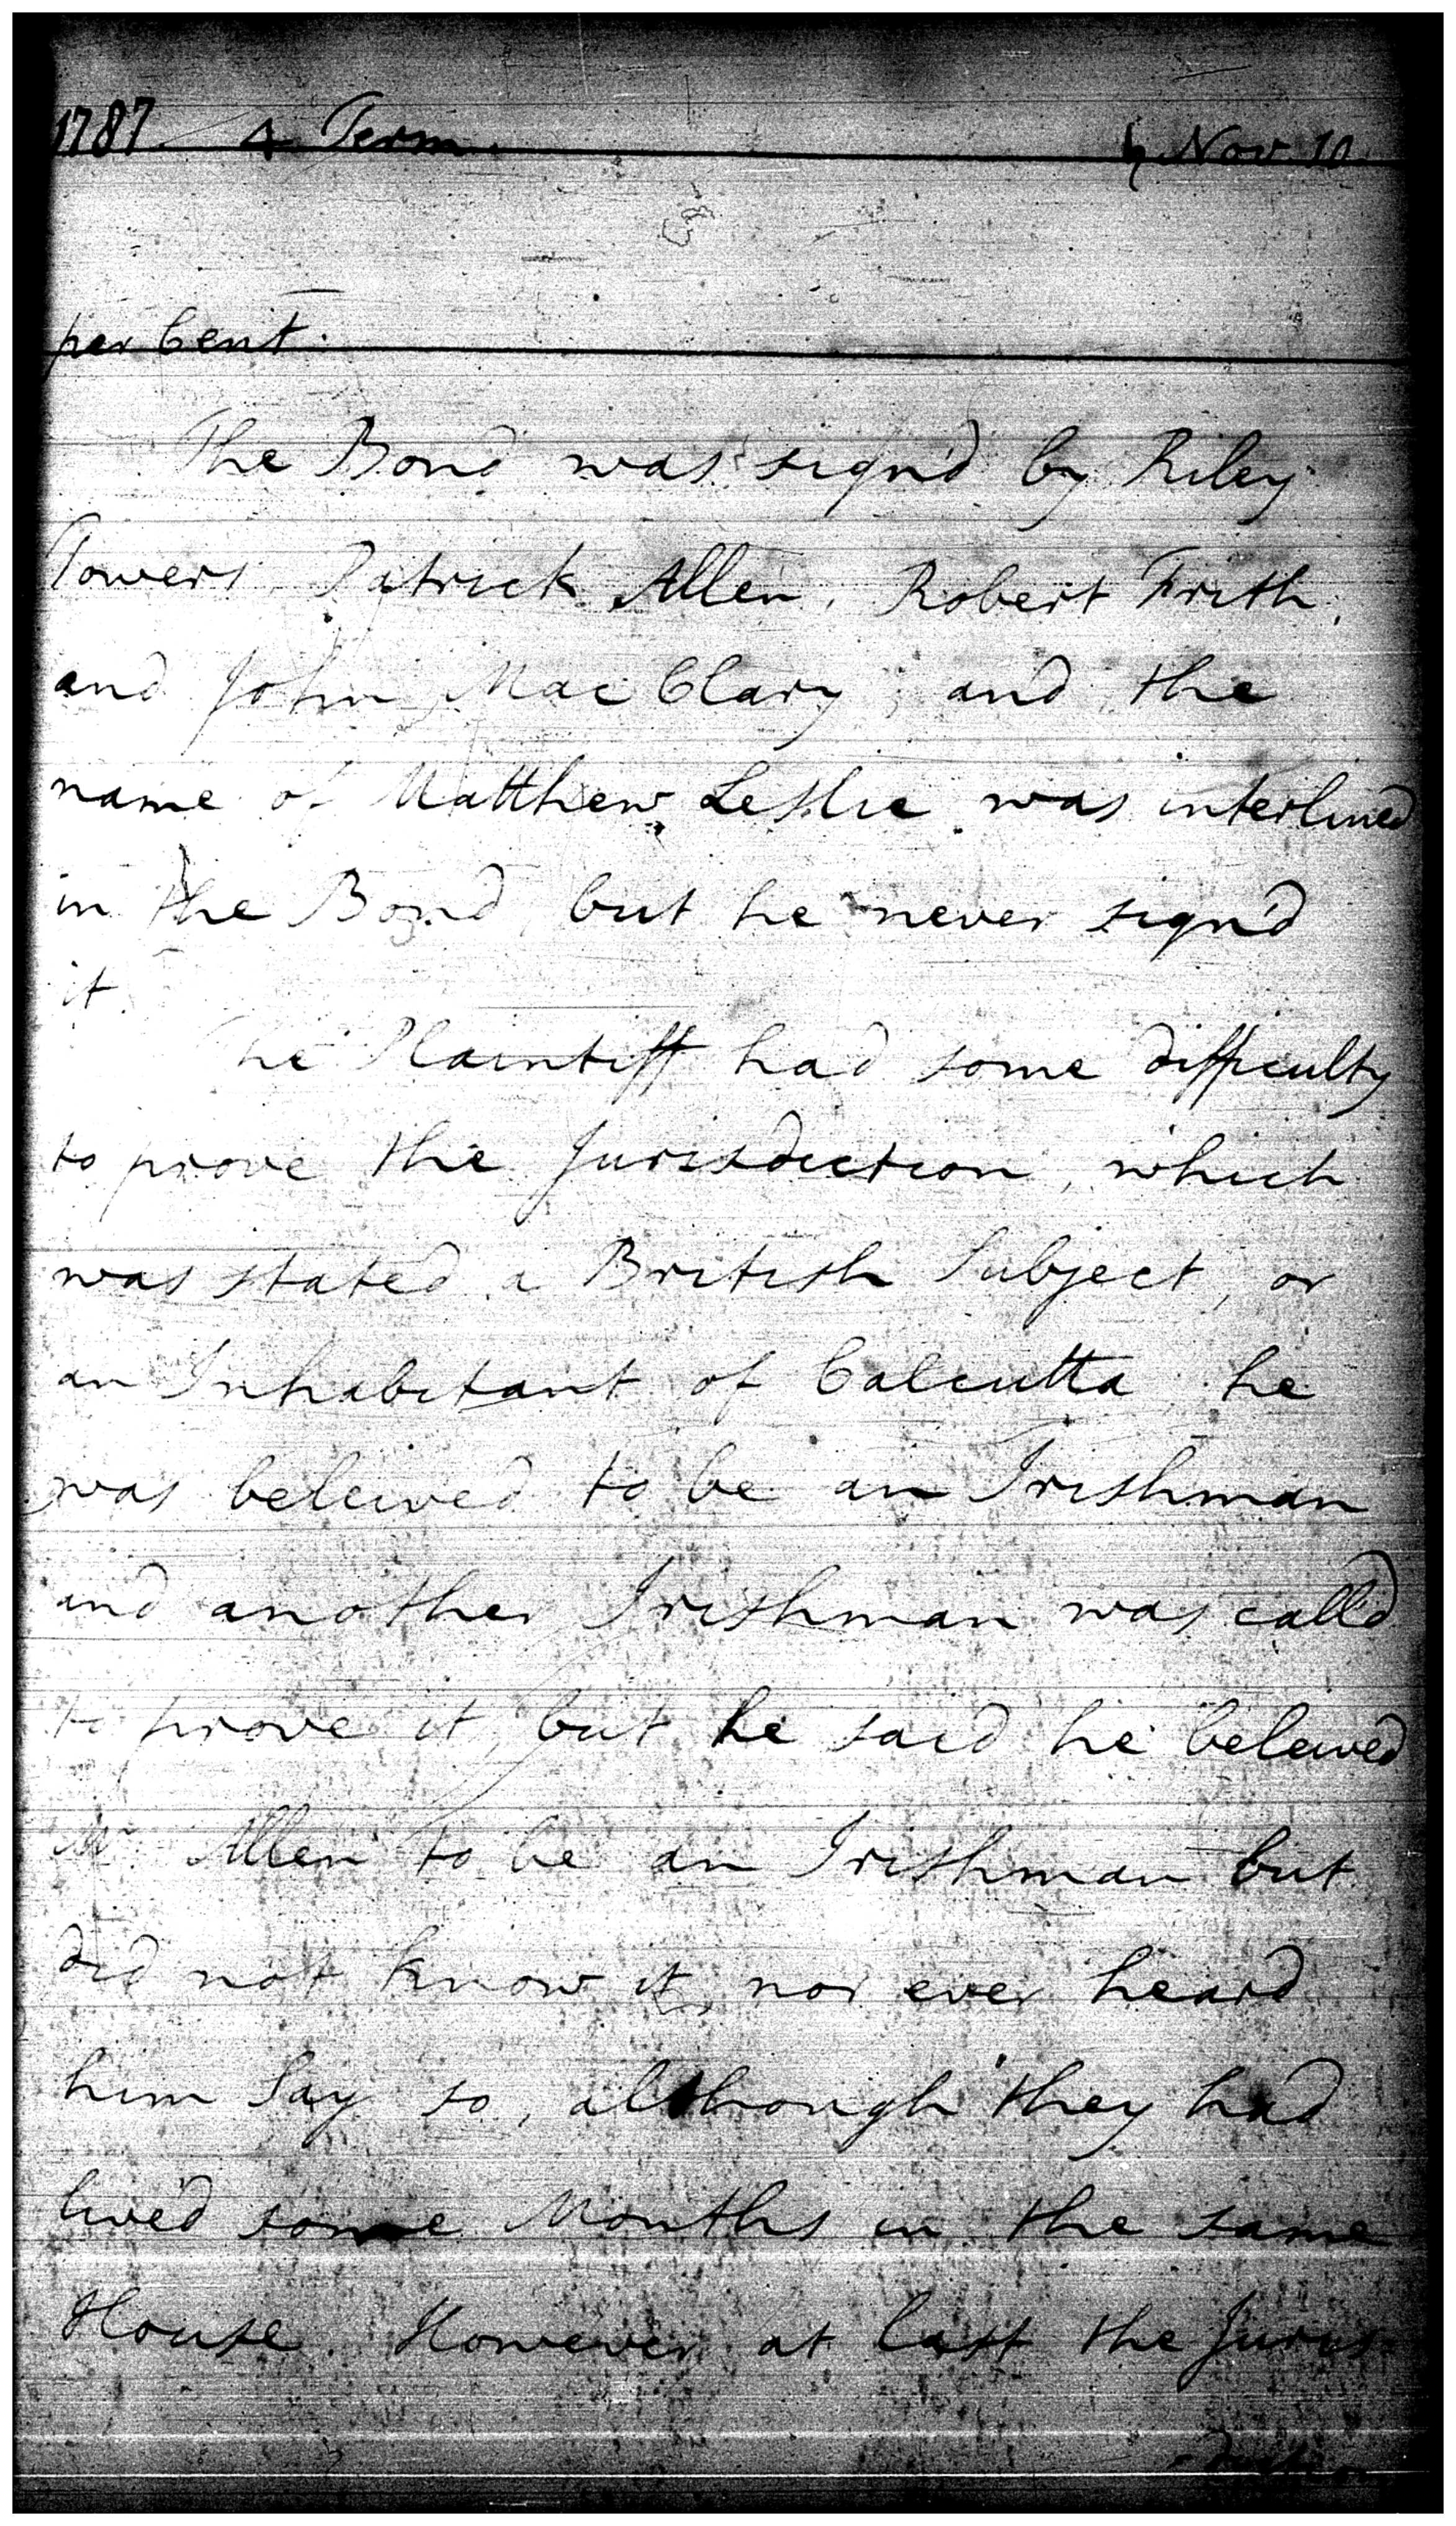 1787 4 Term. ♄ Nov 10.
per Cent.
The Bond was sign'd by Riley
Towers, Patrick Allen, Robert Frith,
and John Mac Clary; and the
name of Matthew Leslie was interlined
in the Bond but he never sign'd
it.
The Plaintiff had some difficulty
to prove the Jurisdiction, which
was stated a British Subject, or
an Inhabitant of Calcutta he
was beleived to be an Irishman
and another Irishman was call'd
to prove it, but he said he beleived
Mr Allen to be an Irishman but
did not know it, nor ever heard
him say so, although they had
lived some Months in the same
House. However at last the Juris-
-diction